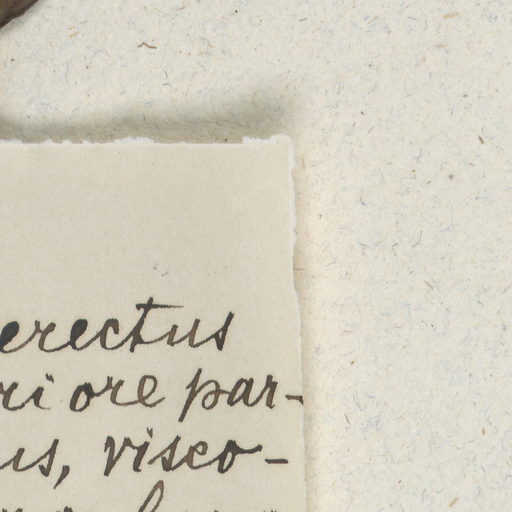 erectus
ri ore par-
us, visco-